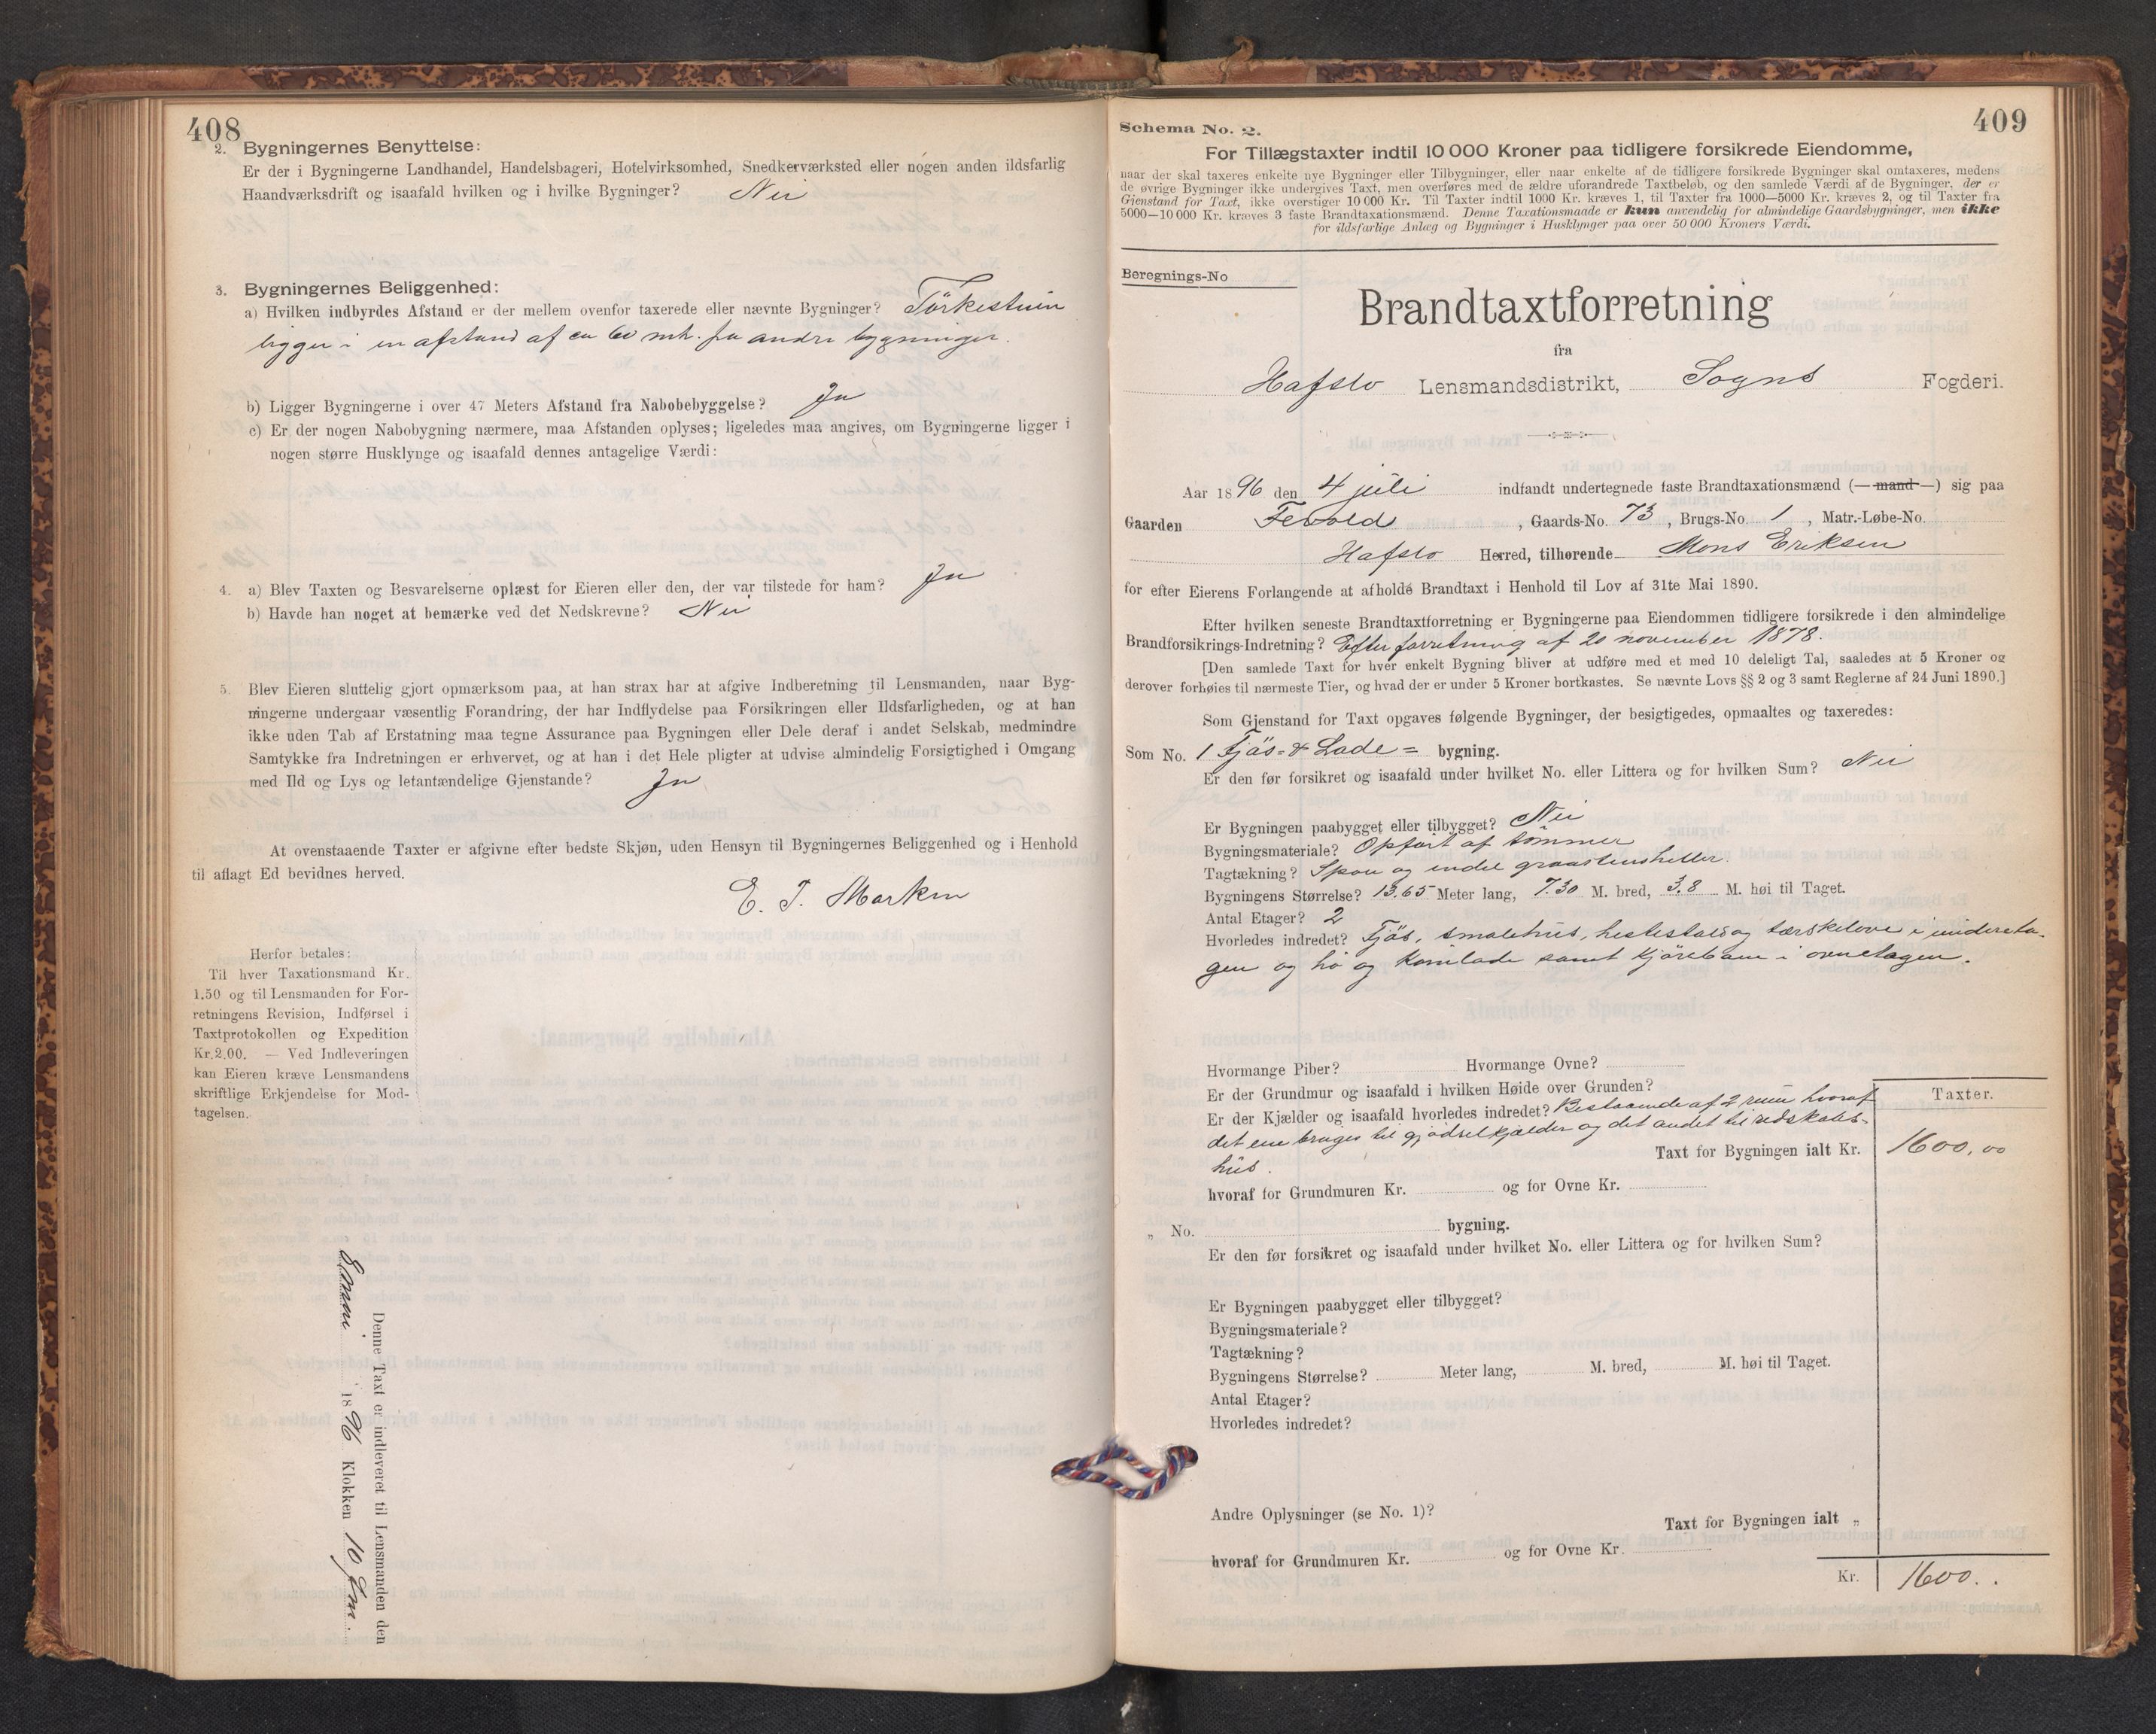 408
2. Bygningernes Benyttelse:
Er der i Bygningerne Landhandel, Handelsbageri, Hotelvirksomhed, Snedkerværksted eller nogen anden ildsfarlig
Haandværksdrift og isaafald hvilken og i hvilke Bygninger? Nei
3. Bygningernes Beliggenhed:
a) Hvilken indbyrdes Afstand er der mellem ovenfor taxerede eller nævnte Bygninger? Törkestuen
ligger i en afstand af ca 60 mtr. fra andre bygninger.
b) Ligger Bygningerne i over 47 Meters Afstand fra Nabobebyggelse? Ja
c) Er der nogen Nabobygning nærmere, maa Afstanden oplyses; ligeledes maa angives, om Bygningerne ligger i
nogen større Husklynge og isaafald dennes antagelige Værdi:
4. a) Blev Taxten og Besvarelserne oplæst for Eieren eller den, der var tilstede for ham? Ja
b) Havde han noget at bemærke ved det Nedskrevne? Nei
5. Blev Eieren sluttelig gjort opmærksom paa, at han strax har at afgive Indberetning til Lensmanden, naar Byg-
ningerne undergaar væsentlig Forandring, der har Indflydelse paa Forsikringen eller Ildsfarligheden, og at han
ikke uden Tab af Erstatning maa tegne Assurance paa Bygningen eller Dele deraf i andet Selskab, medmindre
Samtykke fra Indretningen er erhvervet, og at han i det Hele pligter at udvise almindelig Forsigtighed i Omgang
med Ild og Lys og letantændelige Gjenstande? Ja
At ovenstaaende Taxter er afgivne efter bedste Skjøn, uden Hensyn til Bygningernes Beliggenhed og i Henhold
til aflagt Ed bevidnes herved.
E. T. Marken
Herfor betales:
Til hver Taxationsmand Kr.
1.50 og til Lensmanden for For-
retningens Revision, Indførsel i
Taxtprotokollen og Expedition
Kr.2.00. — Ved Indleveringen
kan Eieren kræve Lensmandens
skriftlige Erkjendelse for Mod-
tagelsen.
Denne Taxt er indleveret til Lensmanden den
1896 Klokken 10 Fm.
409
Schema No. 2.
For Tillægstaxter indtil 10 000 Kroner paa tidligere forsikrede Eiendomme,
naar der skal taxeres enkelte nye Bygninger eller Tilbygninger, eller naar enkelte af de tidligere forsikrede Bygninger skal omtaxeres, medens
de øvrige Bygninger ikke undergives Taxt, men overføres med de ældre uforandrede Taxtbeløb, og den samlede Værdi af de Bygninger, der er
Gjenstand for Taxt, ikke overstiger 10 000 Kr. Til Taxter indtil 1000 Kr. kræves 1, til Taxter fra 1000—5000 Kr. kræves 2, og til Taxter fra
5000—10 000 Kr. kræves 3 faste Brandtaxationsmænd. Denne Taxationsmaade er kun anvendelig for almindelige Gaardsbygninger, men ikke
for ildsfarlige Anlæg og Bygninger i Husklynger paa over 50 000 Kroners Værdi.
Beregnings-No
Brandtaxtforretning
fra
Hafslo Lensmandsdistrikt, Sogns Fogderi.
Aar 1896 den 4 juli indfandt undertegnede faste Brandtaxationsmænd (— mand —) sig paa
Gaarden Fevold, Gaards-No. 73, Brugs-No. 1, Matr.-Løbe-No.
Hafslo Herred, tilhørende Mons Eriksen
for efter Eierens Forlangende at afholde Brandtaxt i Henhold til Lov af 31te Mai 1890.
Efter hvilken seneste Brandtaxtforretning er Bygningerne paa Eiendommen tidligere forsikrede i den almindelige
Brandforsikrings-Indretning? Efter forretning af 20 november 1878.
[Den samlede Taxt for hver enkelt Bygning bliver at udføre med et med 10 deleligt Tal, saaledes at 5 Kroner og
derover forhøies til nærmeste Tier, og hvad der er under 5 Kroner bortkastes. Se nævnte Lovs §§ 2 og 3 samt Reglerne af 24 Juni 1890.]
Som Gjenstand for Taxt opgaves følgende Bygninger, der besigtigedes, opmaaltes og taxeredes:
Som No. 1 Fjös= & Lade= bygning.
Er den før forsikret og isaafald under hvilket No. eller Littera og for hvilken Sum? Nei
Er Bygningen paabygget eller tilbygget? Nei
Bygningsmateriale? Opfört af tömmer
Tagtækning? Spon og endel graastensheller.
Bygningens Størrelse? 13.65 Meter lang, 7.30 M. bred, 3.8 M. høi til Taget.
Antal Etager? 2
Hvorledes indredet? Fjös, smalehus, hestestald og tærskelove i undereta-
gen og hö og kornlade samt kjörebane i övreetagen.
Hvormange Piber? Hvormange Ovne?
Er der Grundmur og isaafald i hvilken Høide over Grunden?
Er der Kjælder og isaafald hvorledes indredet? Bestaaende af 2 rum hvoraf
det ene bruges til gjödselkjælder og det andet til redskabs-
hus.
Taxter.
Taxt for Bygningen ialt Kr. 1600,00
hvoraf for Grundmuren Kr. og for Ovne Kr.
„ No. bygning.
Er den før forsikret og isaafald under hvilket No. eller Littera og for hvilken Sum?
Er Bygningen paabygget eller tilbygget?
Bygningsmateriale?
Tagtækning?
Bygningens Størrelse? Meter lang, M. bred, M. høi til Taget.
Antal Etager?
Hvorledes indredet?
Andre Oplysninger (se No. 1)?
Taxt for Bygningen ialt „
hvoraf for Grundmuren Kr. og for Ovne Kr.
Kr. 1600..